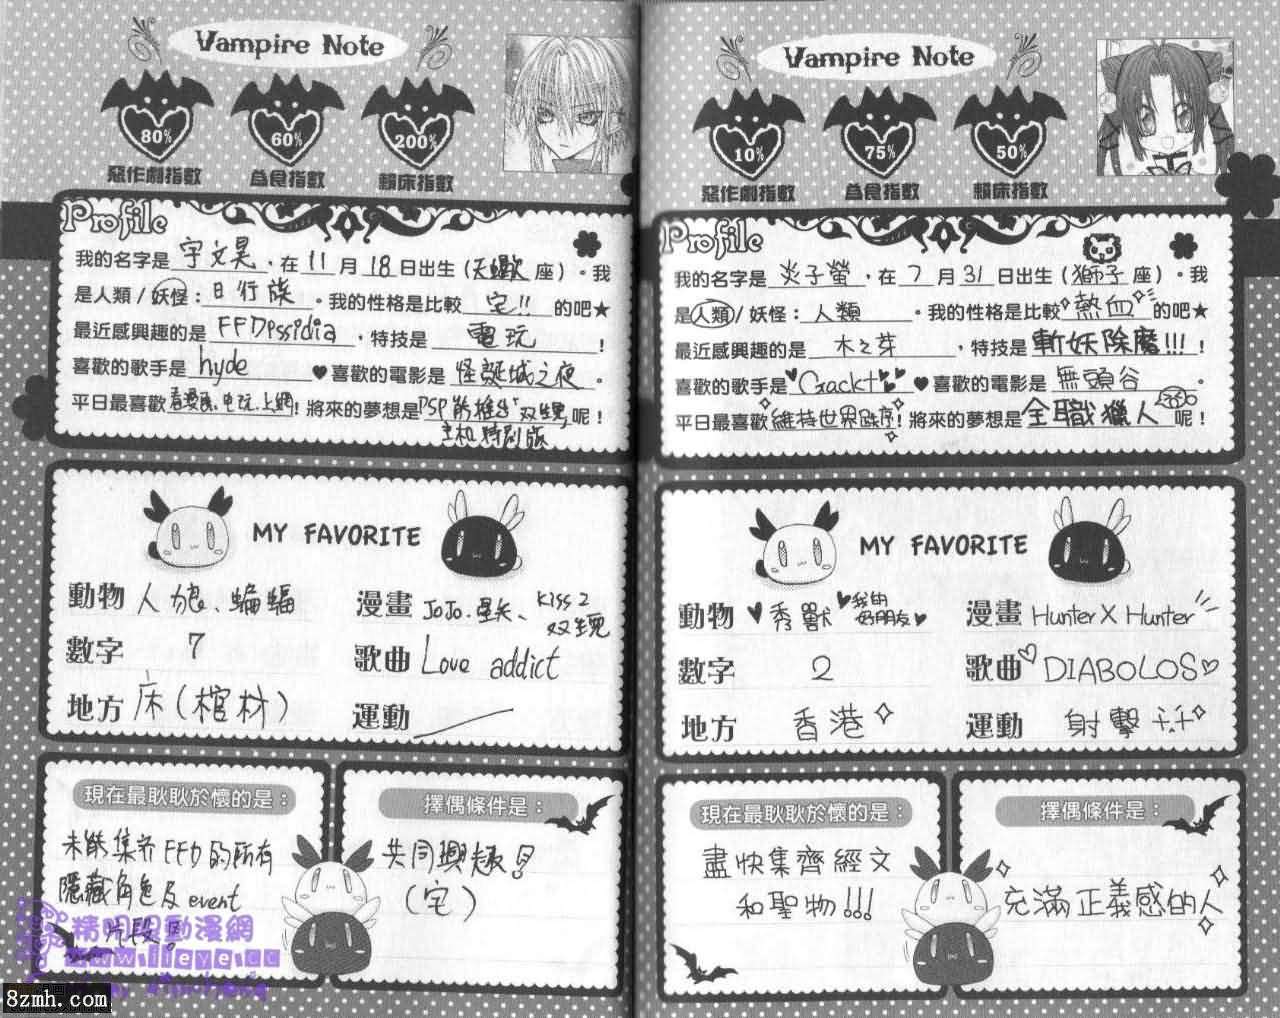 Vampire Note
80%
60%
200%
惡作劇指數
為食指數
賴床指數
Profile
我的名字是 宇文昊 ,在 11 月 18 日出生(天蠍座)。我
是人類/妖怪:日行族。我的性格是比較 宅!! 的吧★
最近感興趣的是 FFDissidia ,特技是 電玩 !
喜歡的歌手是 hyde ♥喜歡的電影是 怪誕城之夜。
平日最喜歡 看漫畫、电玩、上網!將來的夢想是 PSP能推出双生魂呢!
主机特別版
MY FAVORITE
動物 人狼、蝙蝠
漫畫 JoJo、星矢、Kiss2
双生魂
數字 7
歌曲 Love addict
地方 床(棺材)
運動
現在最耿耿於懷的是:
未能集齐FFD的所有
隱藏角色及event
片段!
擇偶條件是:
共同興趣!
(宅)
Vampire Note
10%
75%
50%
惡作劇指數
為食指數
賴床指數
Profile
我的名字是 炎子螢 ,在 7 月 31 日出生(獅子座)。我
是人類/妖怪:人類。我的性格是比較 熱血 的吧★
最近感興趣的是 木之芽 ,特技是 斬妖除魔!!! !
喜歡的歌手是 ♥Gackt♥♥ ♥喜歡的電影是 無頭谷。
平日最喜歡 維持世界秩序!將來的夢想是 全職獵人 呢!
MY FAVORITE
動物 ♥秀獸♥我的
好朋友♥
漫畫 Hunter X Hunter
數字 2
歌曲 ♡DIABOLOS♡
地方 香港
運動 射擊
現在最耿耿於懷的是:
盡快集齊經文
和聖物!!!
擇偶條件是:
充滿正義感的人
8zmh.com